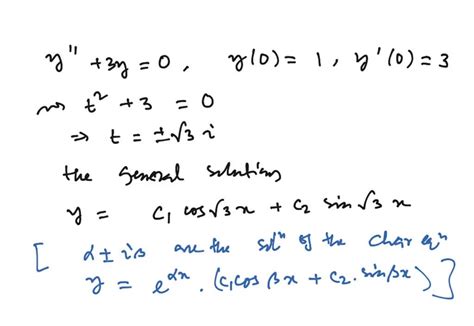 y'' + 3y = 0 , y(0) = 1 , y'(0) = 3
⇝ t² + 3 = 0
⇒ t = ±√3 i
the general solutions
y = c₁ cos√3 x + c₂ sin√3 x
[ α ± iβ are the solⁿ of the char eqⁿ
y = e^{αx} . (c₁cos βx + c₂ . sinβx) ]